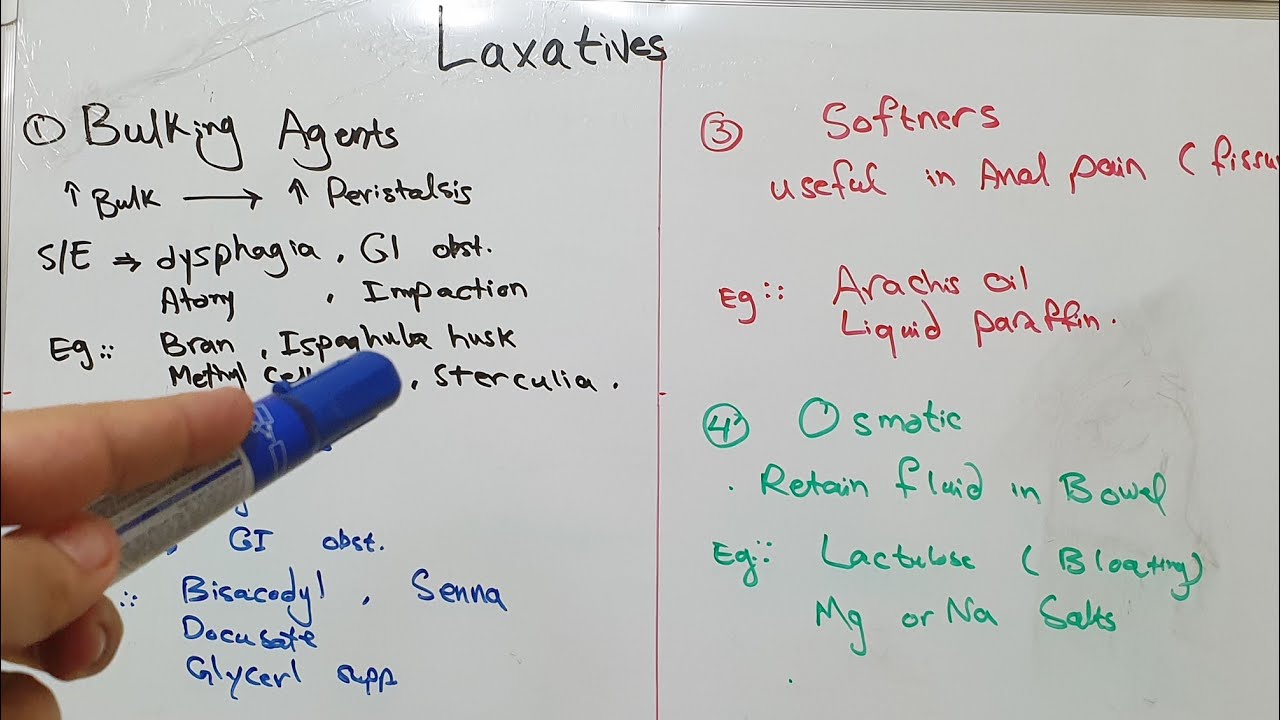 Laxatives
① Bulking Agents
↑ Bulk → ↑ Peristalsis
S/E ⇒ dysphagia, GI obst.
Atony , Impaction
Eg:: Bran , Ispaghula husk
Methyl , Sterculia .
GI obst.
:: Bisacodyl , Senna
Docusate
Glycerl supp
③ Softners
useful in Anal pain (fissu
Eg:: Arachis oil
Liquid paraffin.
④ Osmotic
. Retain fluid in Bowel
Eg:: Lactulose (Bloating)
Mg or Na Salts